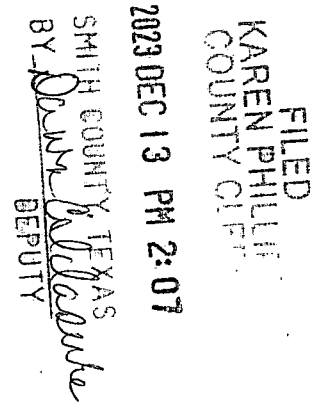 FILED
KAREN PHILLI
COUNTY CLE
2023 DEC 13 PM 2:07
SMITH COUNTY TEXAS
BY Dawn
DEPUTY